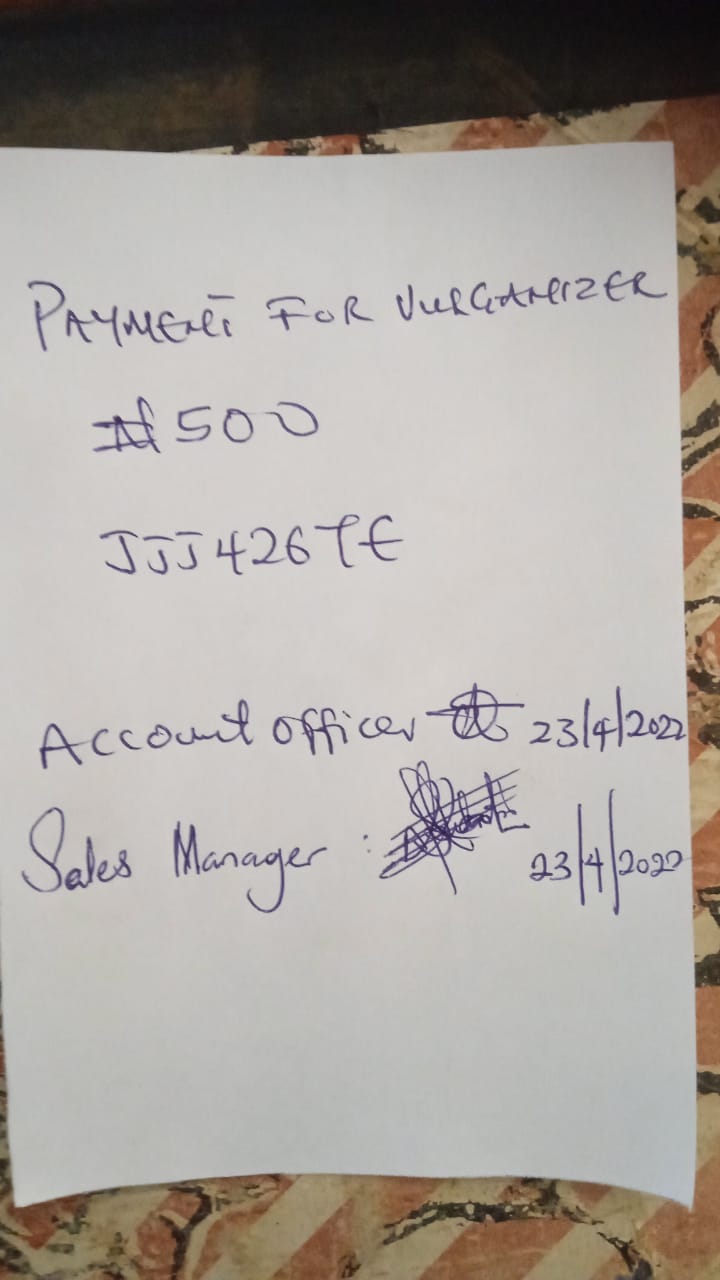 PAYMENT FOR VULGANIZER
₦500
JJJ426TE
Account officer 23/4/2022
Sales Manager : 23/4/2022